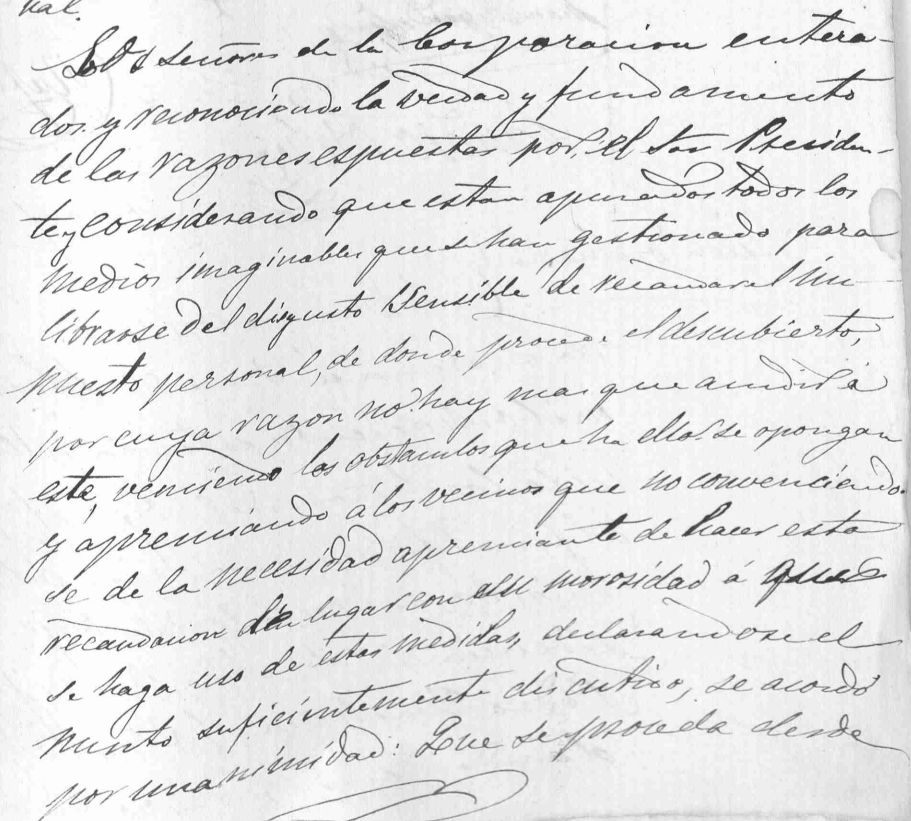 nal.
Los Señores de la Corporacion entera-
dos y reconociendo la verdad y fundamento
de las razones espuestas por el Sor Presiden-
te y considerando que estan apurados todos los
medios imaginables que se han gestionado para
librarse del disgusto sensible de recaudar el im-
puesto personal, de donde procede el descubierto,
por cuya razon no hay mas que acudir á
este, venciendo los obstaculos que ha ello se opongan
y apremiando á los vecinos que no convenciendo-
se de la necesidad apremiante de hacer esta
recaudacion den lugar con su morosidad á que
se haga uso de estas medidas, declarandose el
punto suficientemente discutido, se acordó
por unanimidad: Que se proceda desde